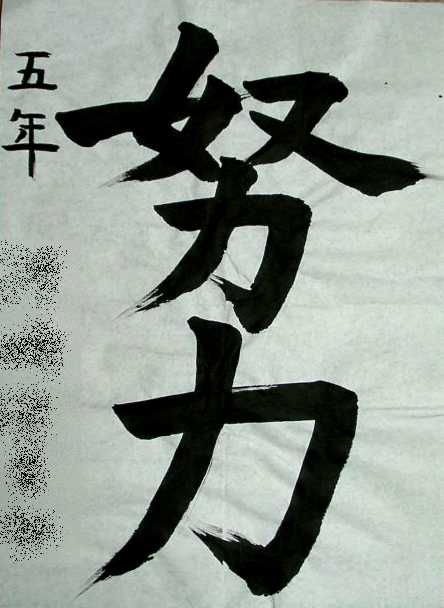 努力
五年